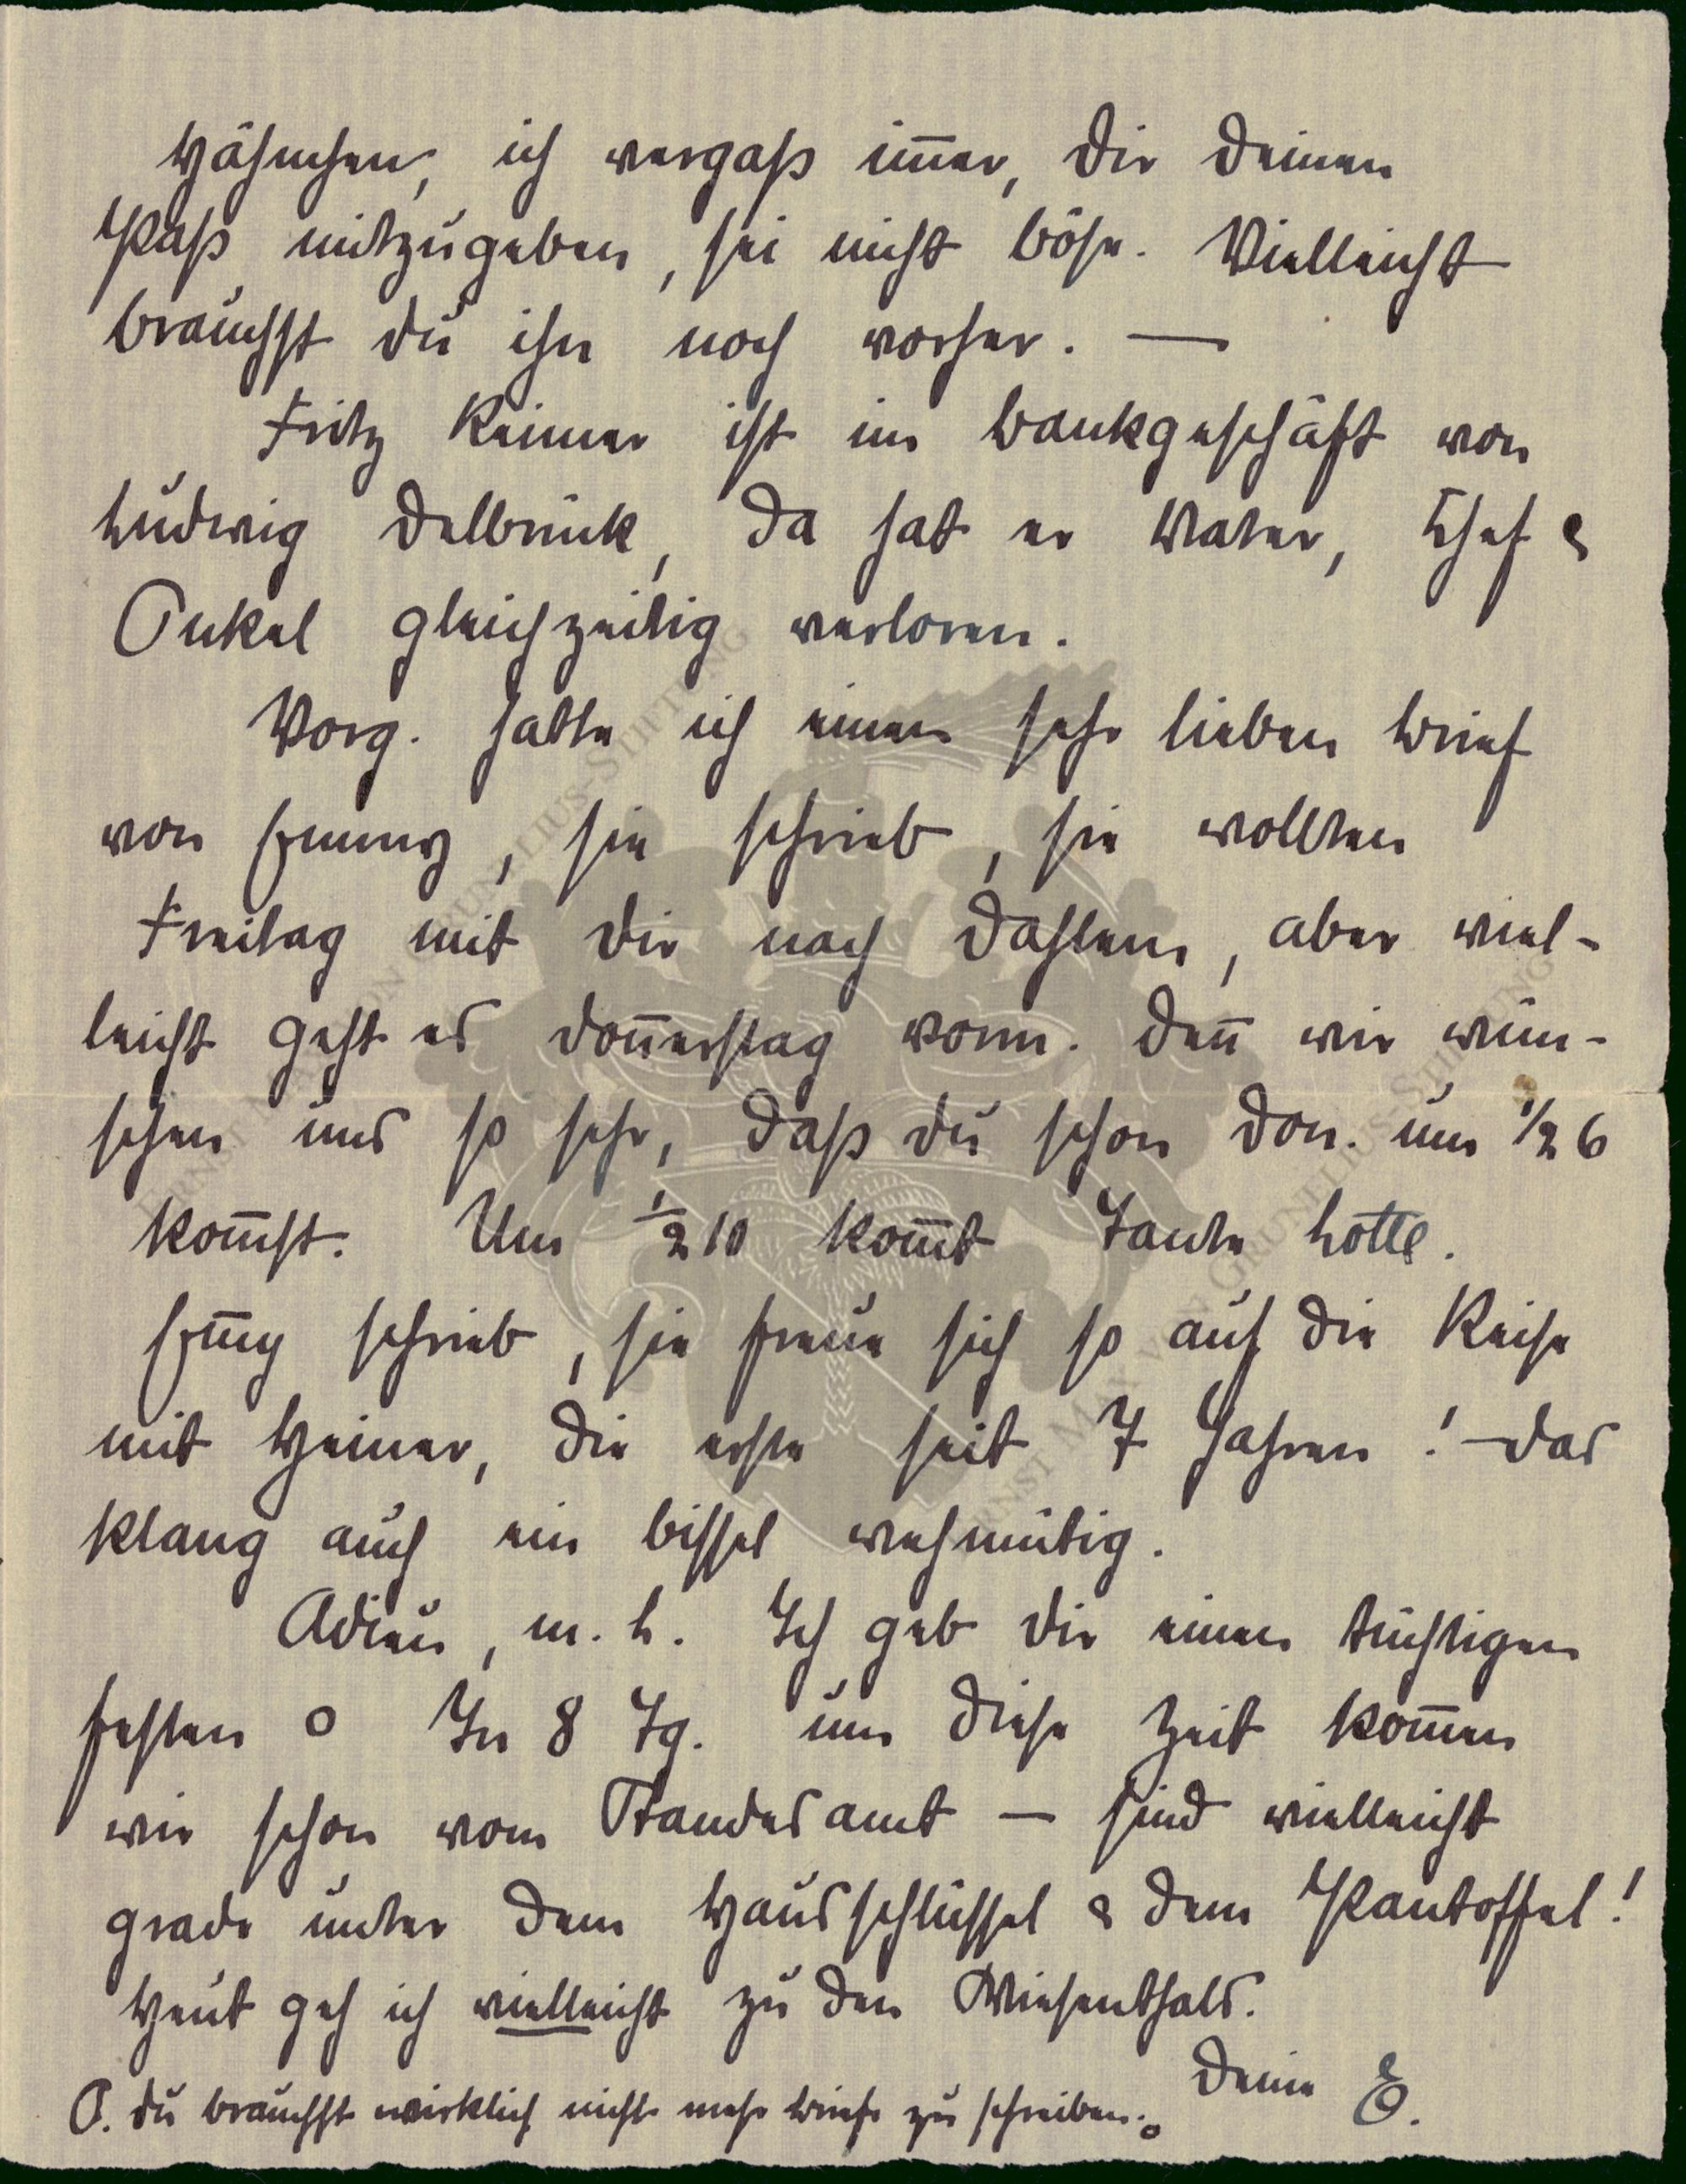 Hähnchen, ich vergaß im̅er, Dir Deinen
Paß mitzugeben, sei nicht böse. Vielleicht
brauchst du ihn noch vorher. —
Fritz Reimer ist im Bankgeschäft von
Ludwig Delbrück, da hat er Vater, Chef &
Onkel gleichzeitig verloren.
Vorg. hatte ich einen sehr lieben Brief
von Emmy, sie schrieb, sie wollten
Freitag mit Dir nach Dahlem, aber viel-
leicht geht es Don̅erstag vorm. Den̅ wir wün-
schen uns so sehr, daß du schon Don. um 1/2 6
kom̅st. Um 1/2 10 kom̅t Tante Lotte.
Em̅y schrieb, sie freue sich so auf die Reise
mit Heiner, die erste seit 7 Jahren! — Das
klang auch ein bissel wehmütig.
Adieu, m. L. Ich geb Dir einen tüchtigen
festen o In 8 Tg. um diese Zeit kom̅en
wir schon vom Standesamt — sind vielleicht
grade unter dem Hausschlüssel & dem Pantoffel!
Heut geh ich vielleicht zu den Wiesenthals.
Deine E.
P. Du brauchst wirklich nicht mehr Briefe zu schreiben. o
ERNST MAX VON GRUNELIUS-STIFTUNG
ERNST MAX VON GRUNELIUS-STIFTUNG